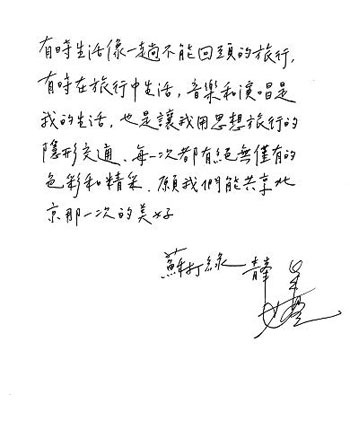 有時生活像一趟不能回頭的旅行,
有時在旅行中生活,音樂和演唱是
我的生活,也是讓我用思想旅行的
隱形交通、每一次都有絕無僅有的
色彩和精采.願我們能共享北
京那一次的美好
蘇打綠 馨